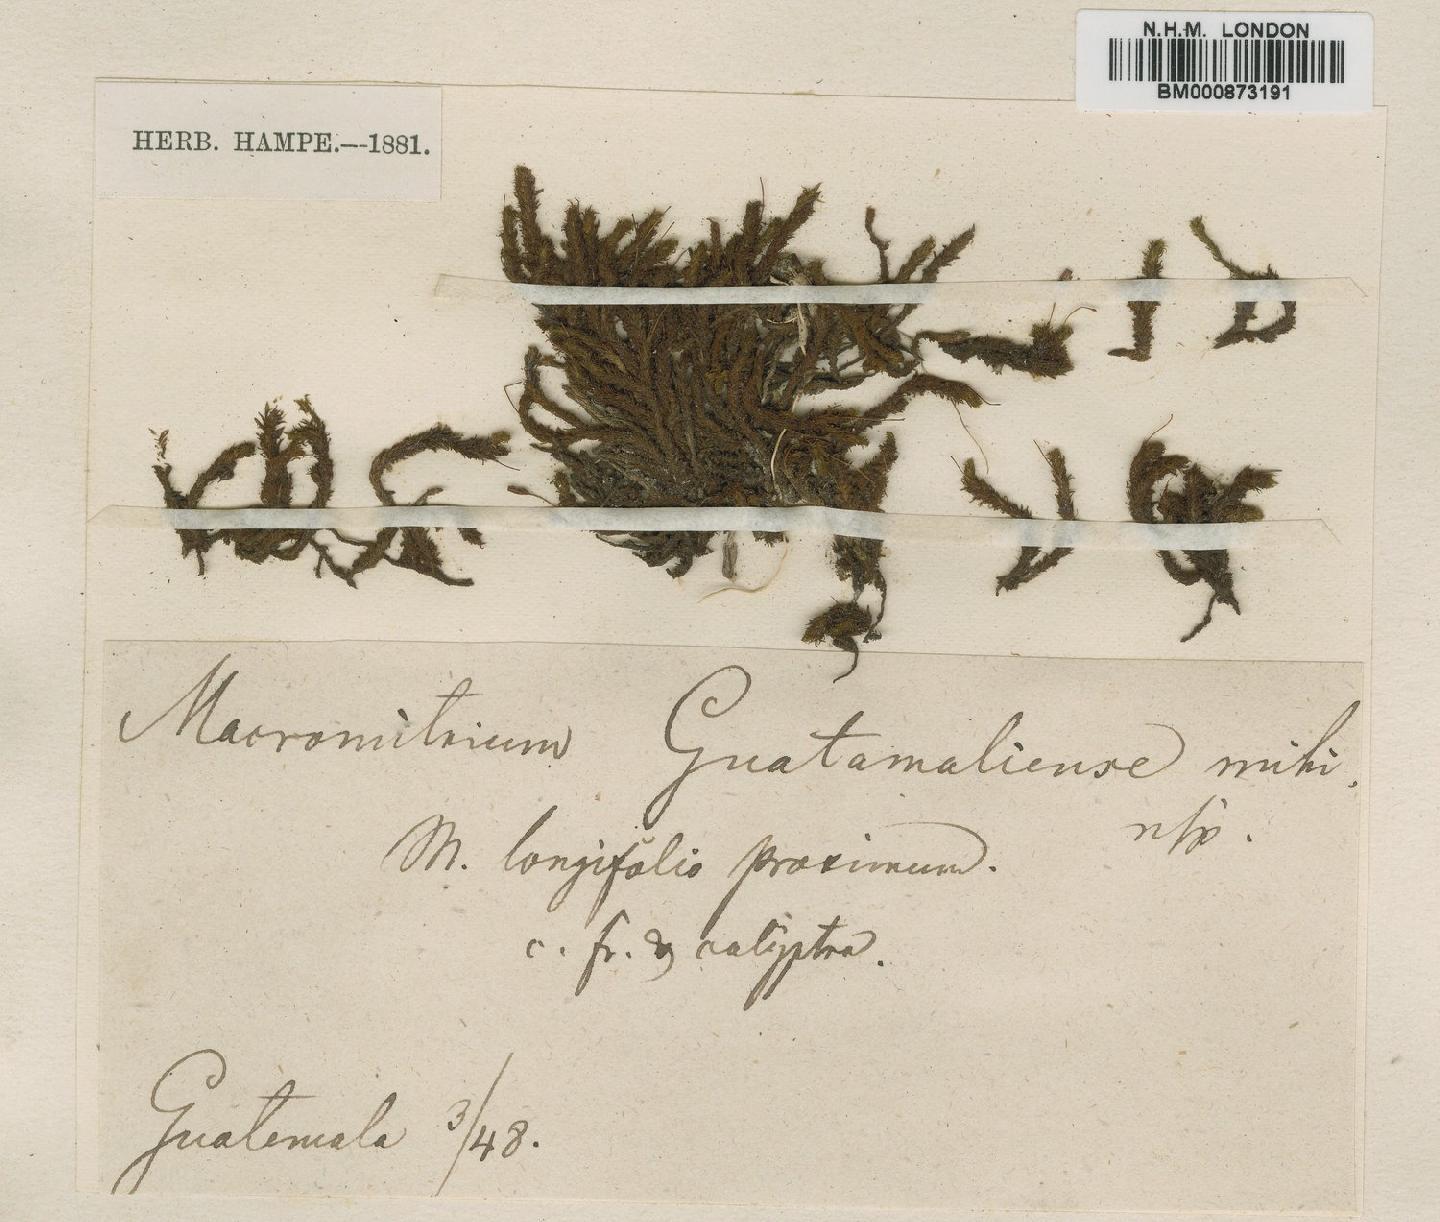 N.H.M. LONDON
BM000873191
HERB. HAMPE.—1881.
Macromitrium Guatamaliense mihi.
nsp.
M. longifolio proximum.
c. fr. & calyptra.
Guatemala 3/48.